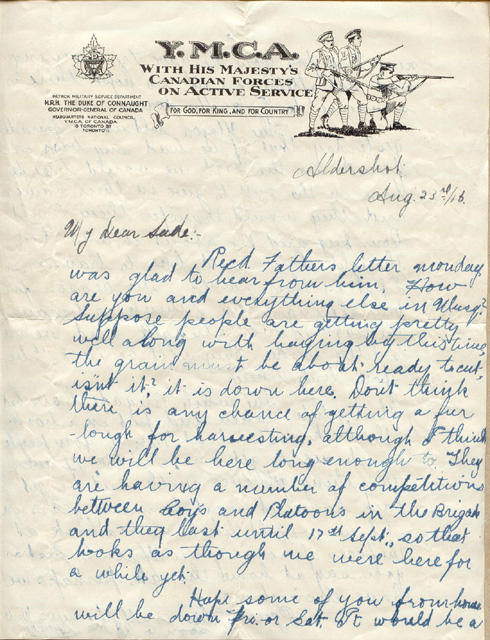 Y.M.C.A.
WITH HIS MAJESTY'S
CANADIAN FORCES
ON ACTIVE SERVICE
FOR GOD, FOR KING, AND FOR COUNTRY
PATRON MILITARY SERVICE DEPARTMENT
H.R.H. THE DUKE OF CONNAUGHT
GOVERNOR-GENERAL OF CANADA
HEADQUARTERS NATIONAL COUNCIL,
Y.M.C.A. OF CANADA
15 TORONTO ST
TORONTO
Aldershot
Aug. 23rd/16.
My Dear Sade:-
Rec'd Fathers letter monday
was glad to hear from him. How
are you and everything else in Musq?
Suppose people are getting pretty
well along with haying by this time,
the grain must be about ready to cut,
isn't it? it is down here. Don't think
there is any chance of getting a fur
lough for harvesting, although I think
we will be here long enough to. They
are having a number of competitions
between Coys and Platoons in the Brigade
and they last until 17th Sept., so that
looks as though we were here for
a while yet.
Hope some of you from home
will be down Fri. or Sat. It would be a